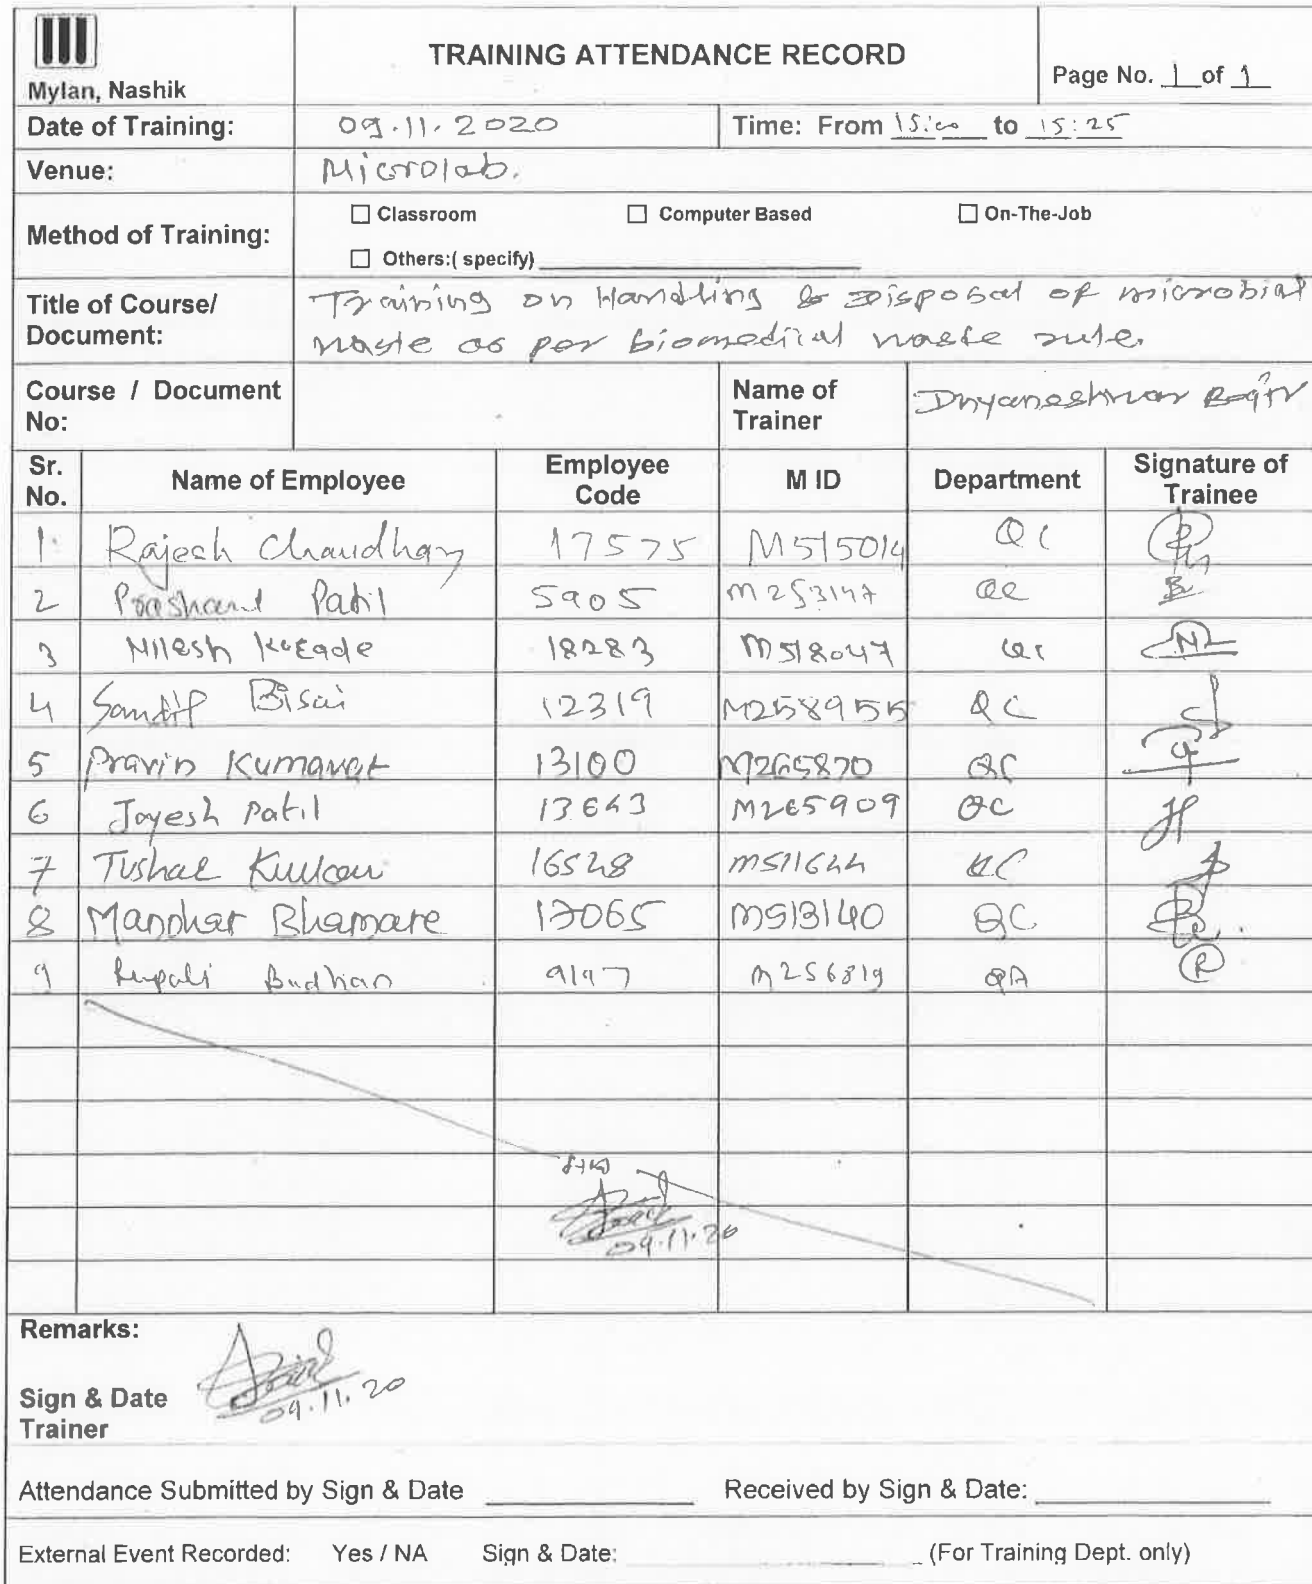 Mylan, Nashik
TRAINING ATTENDANCE RECORD
Page No. 1 of 1
Date of Training: 09.11.2020 Time: From 15:00 to 15:25
Venue: Microlab.
Method of Training: ☐ Classroom ☐ Computer Based ☐ On-The-Job
☐ Others:( specify)
Title of Course/ Training on Handling & Disposal of microbial
Document: waste as per biomedical waste rule.
Course / Document Name of Dnyaneshwar
No: Trainer
Sr. Name of Employee Employee M ID Department Signature of
No. Code Trainee
1. Rajesh Chaudhary 17575 M515014 QC
2 Prashant Patil 5905 M253147 QC
3 Nilesh 18283 M518047 QC
4 Sandip Bisai 12319 M258955 QC
5 Pravin Kumavat 13100 M265870 QC
6 Jayesh Patil 13643 M265909 QC
7 Tushar 16528 M511644 QC
8 Manohar Bhamare 17065 M513140 QC
9 Rupali Budhan 9197 M256819 QA R
09.11.20
Remarks:
Sign & Date 09.11.20
Trainer
Attendance Submitted by Sign & Date Received by Sign & Date:
External Event Recorded: Yes / NA Sign & Date: (For Training Dept. only)